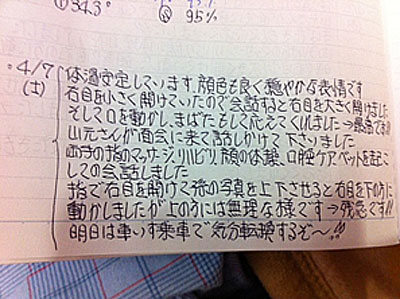 ① 34.3°
② 95%
・4/7 体温安定しています。顔色も良く穏やかな表情です
(土) 右目を小さく開けていたので会話すると右目を大きく開けました
そして口を動かし、まばたもして応えてくれました→最高です!!
山元さんが面会に来て話しかけて下さいました
両手の指のマッサージ、リハビリ、顔の体操、口腔ケア、ベットを起こ
しての会話しました
指で右目を開けて孫の写真を上下させると右目を下の方に
動かしましたが上の方には無理な様です→残念です!!
明日は車いす乗車で気分転換するぞ〜!!